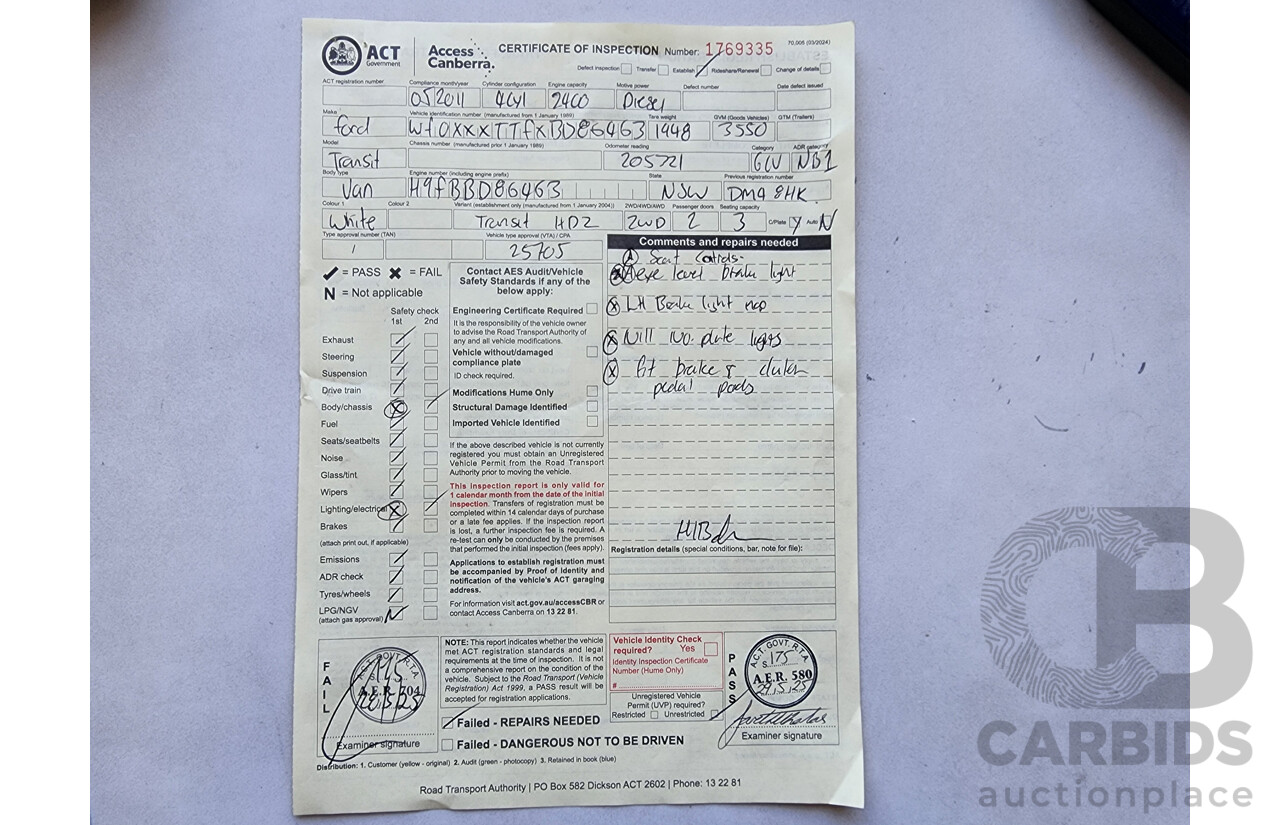 ACT Government
Access Canberra.
CERTIFICATE OF INSPECTION Number: 1769335
70,006 (03/2024)
Defect inspection Transfer Establish Rideshare/Renewal Change of details
ACT registration number Compliance month/year Cylinder configuration Engine capacity Motive power Defect number Date defect issued
05 2011 4cyl 2400 Diesel
Make Vehicle identification number (manufactured from 1 January 1989) Tare weight GVM (Goods Vehicles) GTM (Trailers)
ford Wf0XXXTTfXBD86463 1948 3550
Model Chassis number (manufactured prior 1 January 1989) Odometer reading Category ADR category
Transit 205721 GCV NB1
Body type Engine number (including engine prefix) State Previous registration number
Van H9fBBD86463 NSW DM48HK
Colour 1 Colour 2 Variant (establishment only (manufactured from 1 January 2004)) 2WD/4WD/AWD Passenger doors Seating capacity
White Transit HD2 2WD 2 3 C/Plate Y Auto N
Type approval number (TAN) Vehicle type approval (VTA) / CPA
1 25705
Comments and repairs needed
eye level brake light
LH Brake light nop
Nill No. plate lights
fit brake & clutch
pedal pads
✓ = PASS ✖ = FAIL
N = Not applicable
Safety check
1st 2nd
Exhaust
Steering
Suspension
Drive train
Body/chassis
Fuel
Seats/seatbelts
Noise
Glass/tint
Wipers
Lighting/electrical
Brakes
(attach print out, if applicable)
Emissions
ADR check
Tyres/wheels
LPG/NGV N
(attach gas approval)
Contact AES Audit/Vehicle
Safety Standards if any of the
below apply:
Engineering Certificate Required
It is the responsibility of the vehicle owner
to advise the Road Transport Authority of
any and all vehicle modifications.
Vehicle without/damaged
compliance plate
ID check required.
Modifications Hume Only
Structural Damage Identified
Imported Vehicle Identified
If the above described vehicle is not currently
registered you must obtain an Unregistered
Vehicle Permit from the Road Transport
Authority prior to moving the vehicle.
This inspection report is only valid for
1 calendar month from the date of the initial
inspection. Transfers of registration must be
completed within 14 calendar days of purchase
or a late fee applies. If the inspection report
is lost, a further inspection fee is required. A
re-test can only be conducted by the premises
that performed the initial inspection (fees apply).
Applications to establish registration must
be accompanied by Proof of Identity and
notification of the vehicle's ACT garaging
address.
For information visit act.gov.au/accessCBR or
contact Access Canberra on 13 22 81.
Registration details (special conditions, bar, note for file):
FAIL
Examiner signature
NOTE: This report indicates whether the vehicle
met ACT registration standards and legal
requirements at the time of inspection. It is not
a comprehensive report on the condition of the
vehicle. Subject to the Road Transport (Vehicle
Registration) Act 1999, a PASS result will be
accepted for registration applications.
Failed - REPAIRS NEEDED
Failed - DANGEROUS NOT TO BE DRIVEN
Vehicle Identity Check
required? Yes
Identity Inspection Certificate
Number (Hume Only)
#
Unregistered Vehicle
Permit (UVP) required?
Restricted Unrestricted
PASS
A.C.T. GOVT. R.T.A.
S 175
A.E.R. 580
29.5.25
Examiner signature
Distribution: 1. Customer (yellow - original) 2. Audit (green - photocopy) 3. Retained in book (blue)
Road Transport Authority | PO Box 582 Dickson ACT 2602 | Phone: 13 22 81
CARBIDS
auctionplace